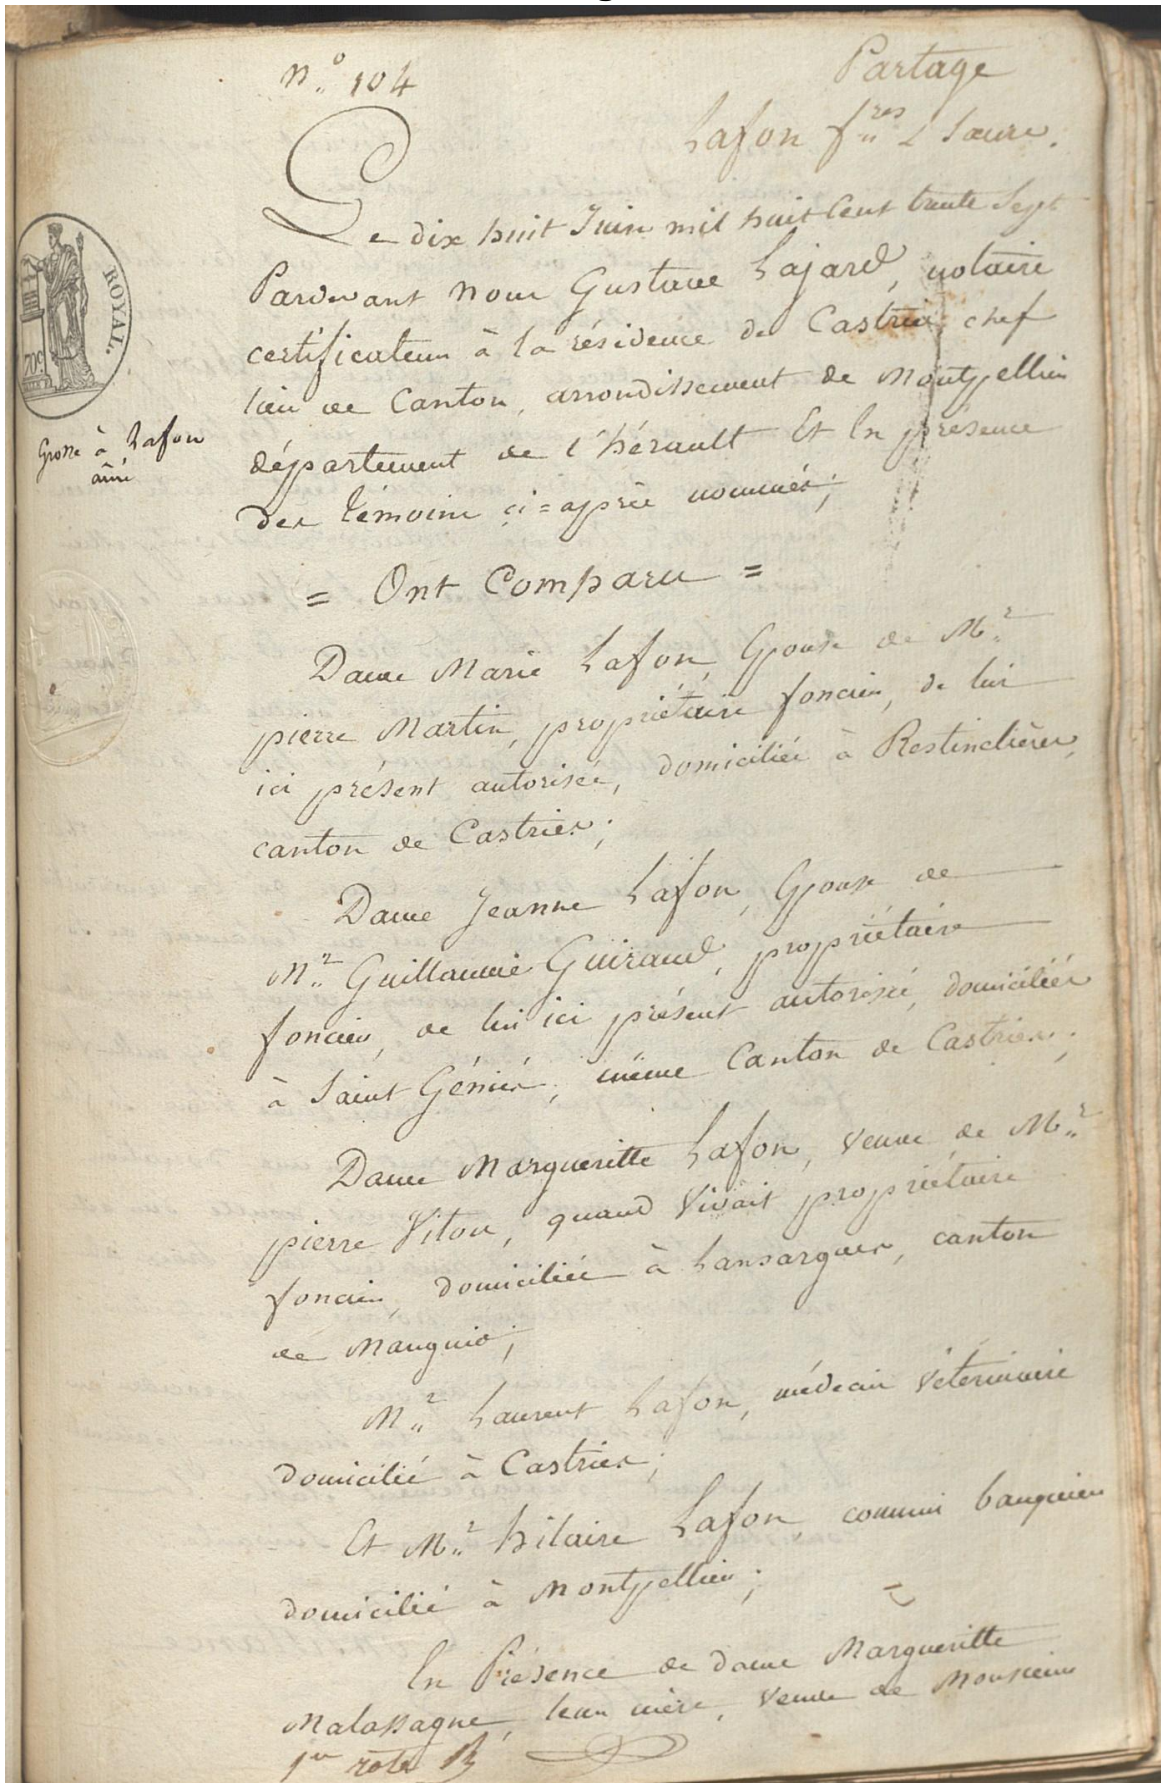 N.º 104
Partage
Lafon f.res & Sœurs.
Le dix huit Juin mil huit Cent trente Sept
Pardevant Nous Gustave Lajard, notaire
certificateur à la résidence de Castries, chef
lieu de Canton, arrondissement de Montpellier
département de l'hérault Et En présence
des témoins ci=après nommés;
= Ont Comparu =
Dame Marie Lafon, Epouse de M.r
pierre Martin, propriétaire foncier, de lui
ici présent autorisée, domiciliée à Restinclières,
canton de Castries;
Dame Jeanne Lafon, Epouse de
M.r Guillaume Guiraud, propriétaire
foncier, de lui ici présent autorisée, domiciliés
à Saint Géniès, même Canton de Castries;
Dame Margueritte Lafon, veuve de M.r
pierre Viton, quand vivait propriétaire
foncier, domiciliée à Lansargues, canton
de Mauguio;
M.r Laurent Lafon, médecin vétérinaire
domicilié à Castries;
Et M.r hilaire Lafon, commis banquier
domicilié à Montpellier;
En Présence de dame Margueritte
Malassagne, leur mère, veuve de Monsieur
1er rôle
ROYAL.
70c.
Grosse à Lafon
aîné